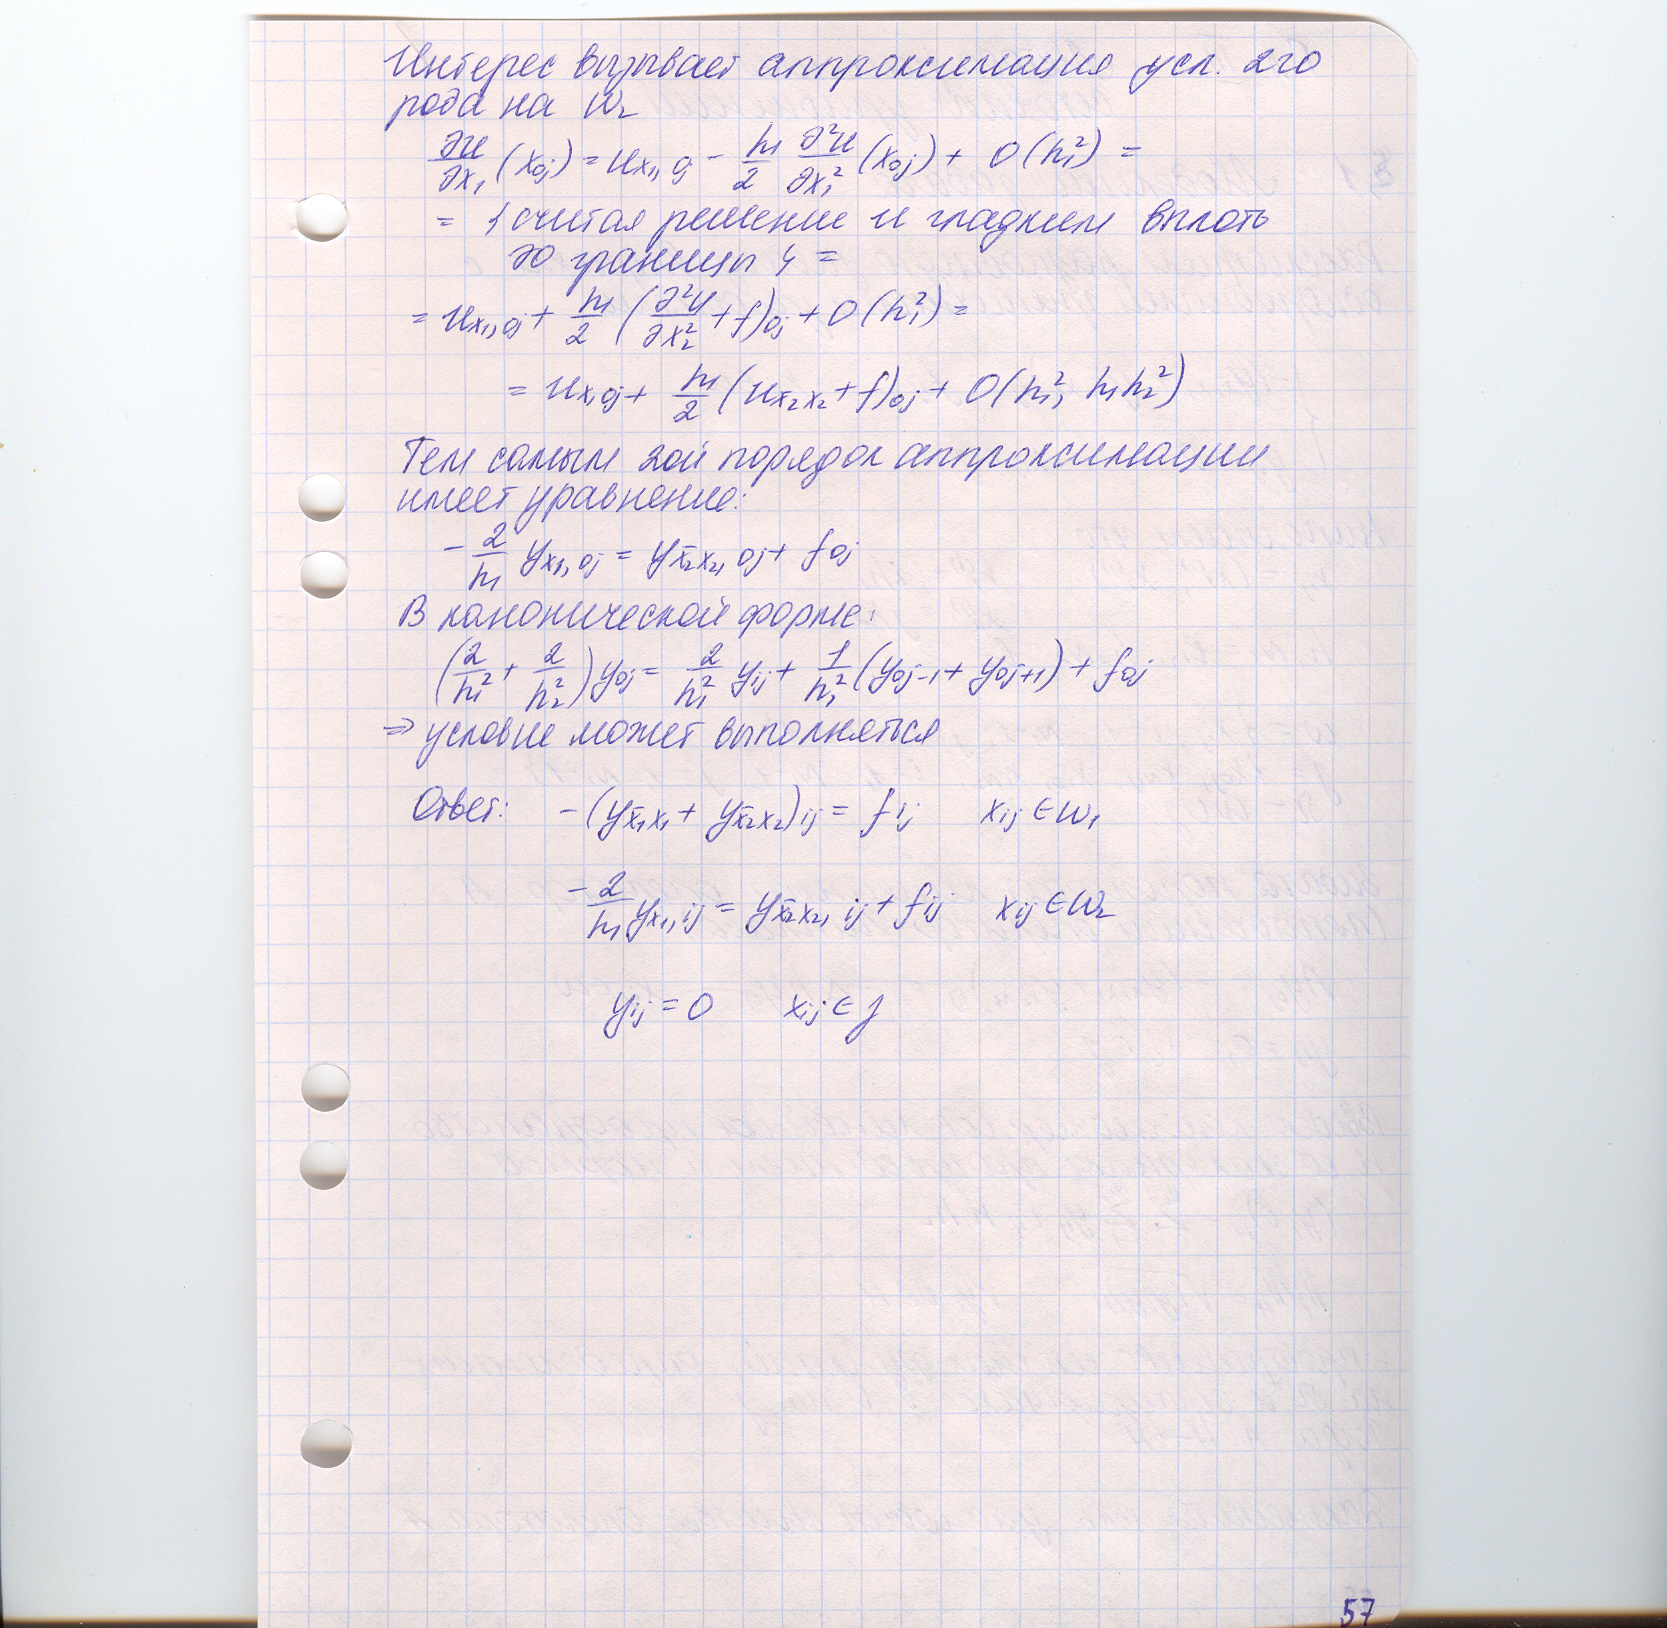 Интерес вызывает аппроксимация усл. 2го
рода на ω₂
∂u/∂x₁ (x₀ⱼ) = u_{x₁,0j} - h₁/2 ∂²u/∂x₁² (x₀ⱼ) + O(h₁²) =
= {считая решение u гладким вплоть
до границы} =
= u_{x₁,0j} + h₁/2 (∂²u/∂x₂² + f)₀ⱼ + O(h₁²) =
= u_{x₁0j} + h₁/2 (u_{x̄₂x₂} + f)₀ⱼ + O(h₁², h₁h₂²)
Тем самым 2ой порядок аппроксимации
имеет уравнение:
- 2/h₁ y_{x₁,0j} = y_{x̄₂x₂,0j} + f₀ⱼ
В канонической форме:
(2/h₁² + 2/h₂²) y₀ⱼ = 2/h₁² y₁ⱼ + 1/h₂² (y_{0j-1} + y_{0j+1}) + f₀ⱼ
⇒ условие может выполняться
Ответ: - (y_{x̄₁x₁} + y_{x̄₂x₂})ᵢⱼ = fᵢⱼ xᵢⱼ ∈ ω₁
- 2/h₁ y_{x₁,ij} = y_{x̄₂x₂,ij} + fᵢⱼ xᵢⱼ ∈ ω₂
yᵢⱼ = 0 xᵢⱼ ∈ γ
57